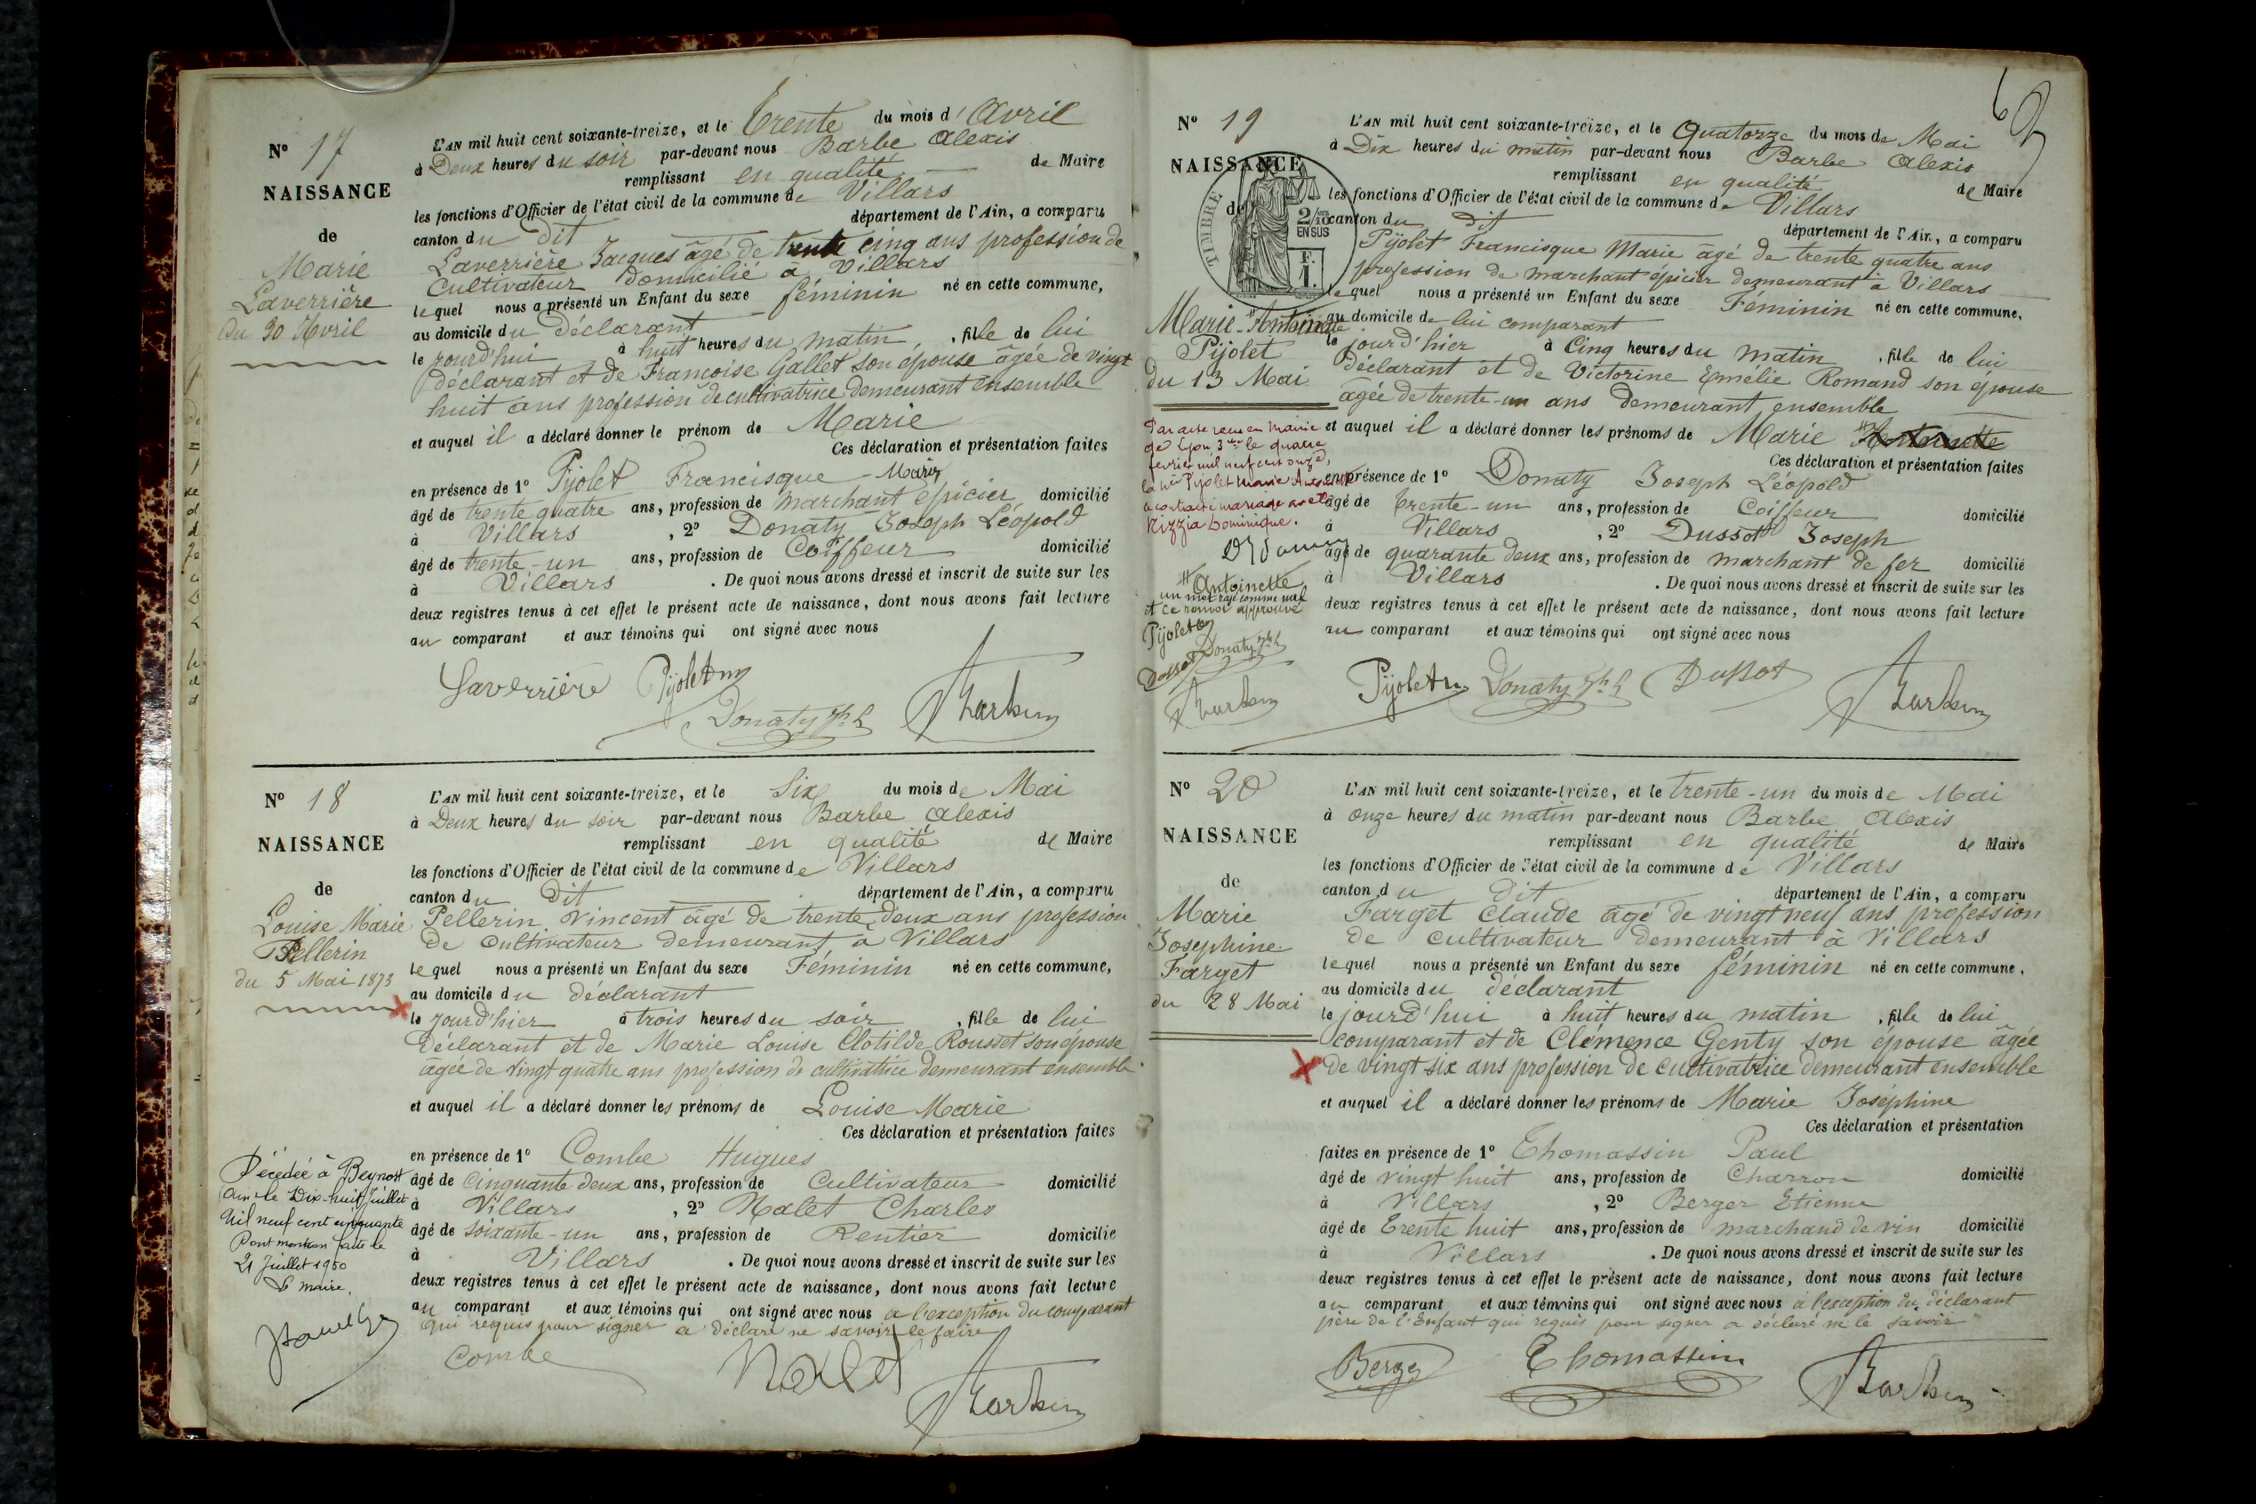 N° 17
NAISSANCE
de
Marie
Laverrière
du 30 Avril
L'AN mil huit cent soixante-treize, et le Trente du mois d'Avril
à Deux heures du soir par-devant nous Barbe Alexis
remplissant en qualité de Maire
les fonctions d'Officier de l'état civil de la commune de Villars
canton du dit département de l'Ain, a comparu
Laverrière Jacques âgé de trente cinq ans profession de
Cultivateur domicilié à Villars
lequel nous a présenté un Enfant du sexe féminin né en cette commune,
au domicile du déclarant
le jourd'hui à huit heures du matin, fille de lui
déclarant et de Françoise Gallet son épouse âgée de vingt
huit ans profession de cultivatrice demeurant ensemble
et auquel il a déclaré donner le prénom de Marie
Ces déclaration et présentation faites
en présence de 1° Pijolet Francisque Marie
âgé de trente quatre ans, profession de marchant épicier domicilié
à Villars, 2° Donaty Joseph Léopold
âgé de trente-un ans, profession de Coiffeur domicilié
à Villars. De quoi nous avons dressé et inscrit de suite sur les
deux registres tenus à cet effet le présent acte de naissance, dont nous avons fait lecture
au comparant et aux témoins qui ont signé avec nous
Laverrière Pijolet
Donaty
N° 18
NAISSANCE
de
Louise Marie
Pellerin
du 5 Mai 1873
L'AN mil huit cent soixante-treize, et le Six du mois de Mai
à Deux heures du soir par-devant nous Barbe Alexis
remplissant en qualité de Maire
les fonctions d'Officier de l'état civil de la commune de Villars
canton du Dit département de l'Ain, a comparu
Pellerin Vincent âgé de trente deux ans profession
de cultivateur demeurant à Villars
lequel nous a présenté un Enfant du sexe Féminin né en cette commune,
au domicile du déclarant
le jourd'hier à trois heures du soir, fille de lui
déclarant et de Marie Louise Clotilde Rousset son épouse
âgée de vingt quatre ans profession de cultivatrice demeurant ensemble
et auquel il a déclaré donner les prénoms de Louise Marie
Ces déclaration et présentation faites
en présence de 1° Combe Hugues
âgé de Cinquante deux ans, profession de Cultivateur domicilié
à Villars, 2° Malet Charles
âgé de soixante-un ans, profession de Rentier domicilié
à Villars. De quoi nous avons dressé et inscrit de suite sur les
deux registres tenus à cet effet le présent acte de naissance, dont nous avons fait lecture
au comparant et aux témoins qui ont signé avec nous à l'exception du comparant
qui requis pour signer a déclaré ne savoir le faire
Décédée à Beynost
Ain le Dix-huit Juillet
Mil neuf cent cinquante
Dont mention faite le
21 Juillet 1950
Le maire,
Combe Malet
N° 19
NAISSANCE
de
TIMBRE
2/10 EN SUS
F. 1.
Marie-Antoinette
Pijolet
du 13 Mai
L'AN mil huit cent soixante-treize, et le Quatorze du mois de Mai
à Dix heures du matin par-devant nous Barbe Alexis
remplissant en qualité de Maire
les fonctions d'Officier de l'état civil de la commune de Villars
canton du dit département de l'Ain, a comparu
Pijolet Francisque Marie âgé de trente quatre ans
profession de marchant épicier demeurant à Villars
lequel nous a présenté un Enfant du sexe Féminin né en cette commune,
au domicile de lui comparant
le jourd'hier à Cinq heures du matin, fille de lui
déclarant et de Victorine Emélie Romand son épouse
âgée de trente-un ans demeurant ensemble
et auquel il a déclaré donner les prénoms de Marie # Antoinette
Ces déclaration et présentation faites
en présence de 1° Donaty Joseph Léopold
âgé de trente-un ans, profession de Coiffeur domicilié
à Villars, 2° Dussot Joseph
âgé de quarante deux ans, profession de marchant de fer domicilié
à Villars. De quoi nous avons dressé et inscrit de suite sur les
deux registres tenus à cet effet le présent acte de naissance, dont nous avons fait lecture
au comparant et aux témoins qui ont signé avec nous
Par acte reçu en Mairie
de Lyon 3 le quatre
février mil neuf cent onze,
la dite Pijolet Marie Antoinette
a contracté mariage avec
Nizzia Dominique.
# Antoinette
un mot rayé comme nul
et ce renvoi approuvé
Pijolet
Donaty
Dussot
Pijolet Donaty Dussot
N° 20
NAISSANCE
de
Marie
Josephine
Farget
du 28 Mai
L'AN mil huit cent soixante-treize, et le trente-un du mois de Mai
à onze heures du matin par-devant nous Barbe Alexis
remplissant en qualité de Maire
les fonctions d'Officier de l'état civil de la commune de Villars
canton du dit département de l'Ain, a comparu
Farget Claude âgé de vingt neuf ans profession
de cultivateur demeurant à Villars
lequel nous a présenté un Enfant du sexe féminin né en cette commune,
au domicile du déclarant
le jourd'hui à huit heures du matin, fille de lui
comparant et de Clémence Genty son épouse âgée
de vingt six ans profession de cultivatrice demeurant ensemble
et auquel il a déclaré donner les prénoms de Marie Joséphine
Ces déclaration et présentation
faites en présence de 1° Thomassin Paul
âgé de vingt huit ans, profession de Charron domicilié
à Villars, 2° Berger Etienne
âgé de Trente huit ans, profession de marchand de vin domicilié
à Villars. De quoi nous avons dressé et inscrit de suite sur les
deux registres tenus à cet effet le présent acte de naissance, dont nous avons fait lecture
au comparant et aux témoins qui ont signé avec nous à l'exception du déclarant
père de l'Enfant qui requis pour signer a déclaré ne le savoir
Berger Thomassin